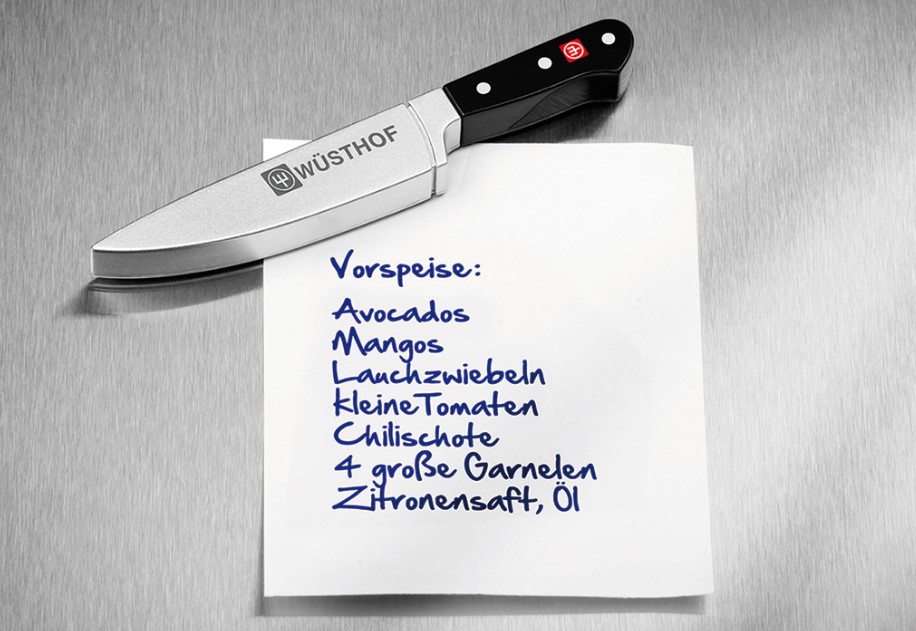 WÜSTHOF
Vorspeise:
Avocados
Mangos
Lauchzwiebeln
kleine Tomaten
Chilischote
4 große Garnelen
Zitronensaft, Öl